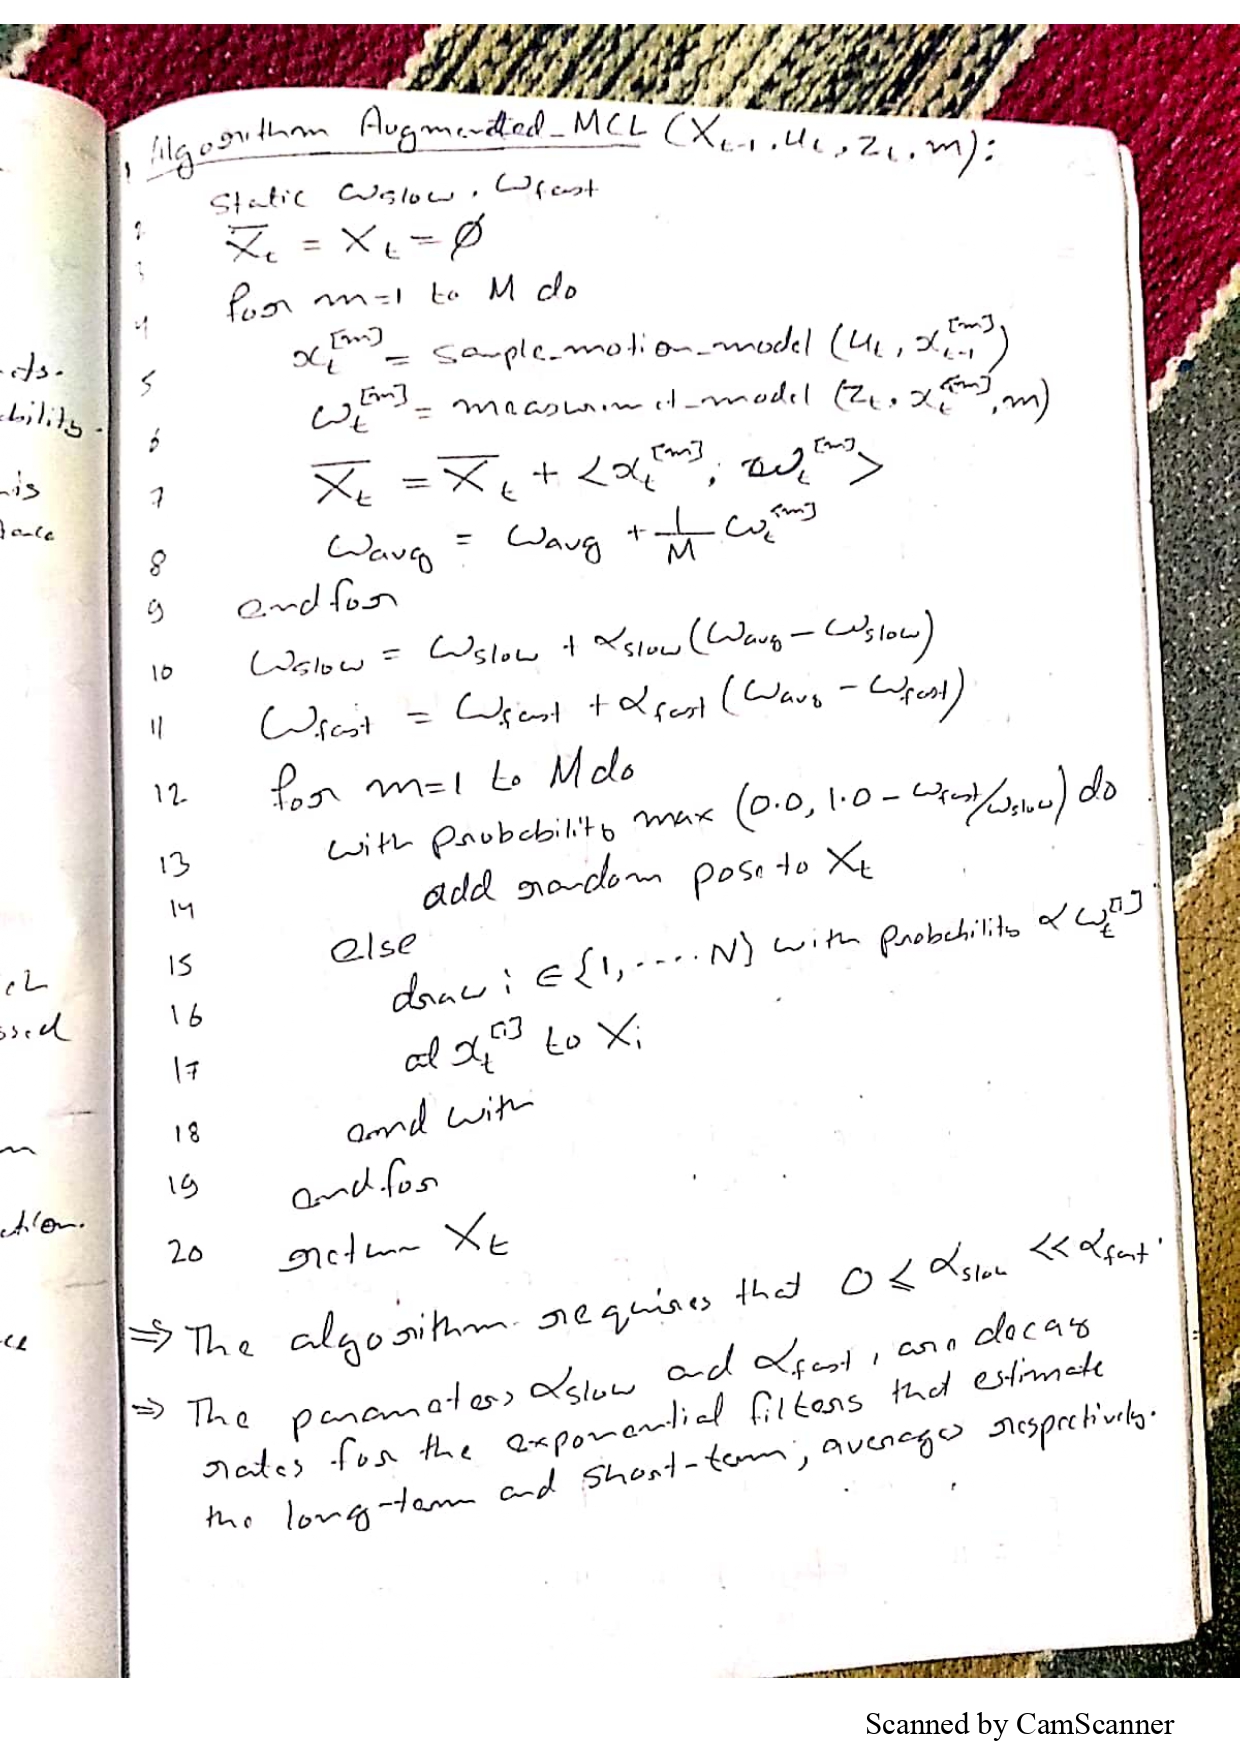 1 Algorithm Augmented_MCL (X_{t-1}, u_t, z_t, m):
2 Static ω_slow, ω_fast
3 X̄_t = X_t = ∅
4 for m=1 to M do
5 x_t^{[m]} = sample_motion_model (u_t, x_{t-1}^{[m]})
6 ω_t^{[m]} = measurment_model (z_t, x_t^{[m]}, m)
7 X̄_t = X̄_t + <x_t^{[m]}, ω_t^{[m]}>
8 ω_avg = ω_avg + 1/M ω_t^{[m]}
9 endfor
10 ω_slow = ω_slow + α_slow (ω_avg – ω_slow)
11 ω_fast = ω_fast + α_fast (ω_avg – ω_fast)
12 for m=1 to M do
13 with probability max (0.0, 1.0 – ω_fast/ω_slow) do
14 add random pose to X_t
15 else
16 draw i ∈ {1, ..... N} with probability α ω_t^{[i]}
17 ad x_t^{[i]} to X_i
18 end with
19 endfor
20 return X_t
⇒ The algorithm requires that 0 ≤ α_slow << α_fast.
⇒ The parameters α_slow and α_fast, are decay
rates for the exponential filters that estimate
the long-term and short-term, averages respectively.
Scanned by CamScanner